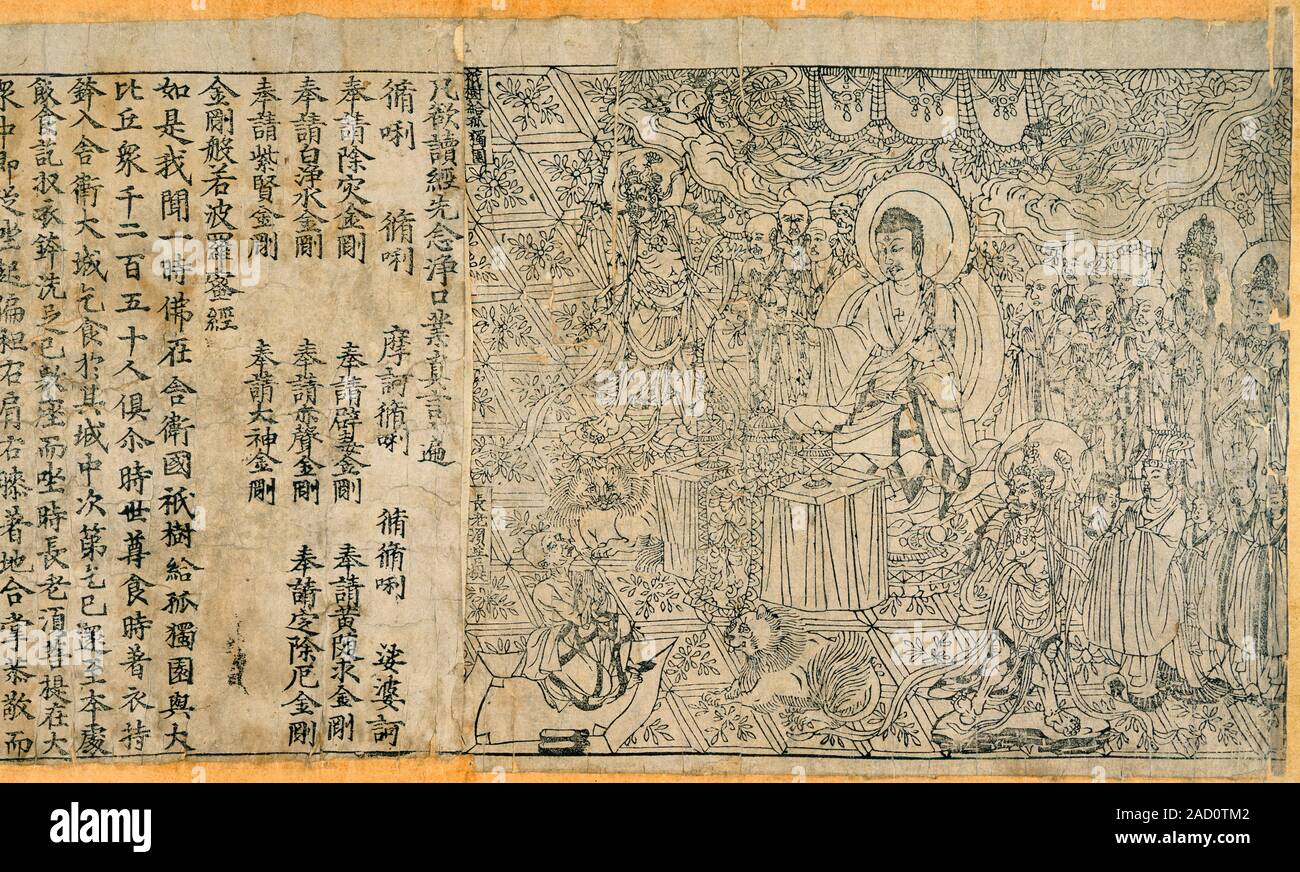 祇樹給孤獨園
長老須菩提
凡欲讀經先念淨口業真言一遍
脩唎 脩唎 摩訶脩唎 脩脩唎 娑婆訶
奉請除灾金剛 奉請辟毒金剛 奉請黃隨求金剛
奉請白淨水金剛 奉請赤聲金剛 奉請定除厄金剛
奉請紫賢金剛 奉請大神金剛
金剛般若波羅蜜經
如是我聞一時佛在舍衛國祇樹給孤獨園與大
比丘衆千二百五十人俱尒時世尊食時著衣持
鉢入舍衛大城乞食於其城中次第乞已還至本處
飯食訖収衣鉢洗足已敷座而坐時長老須菩提在大
衆中即從坐起偏袒右肩右膝著地合掌恭敬而
alamy
Image ID: 2AD0TM2
www.alamy.com